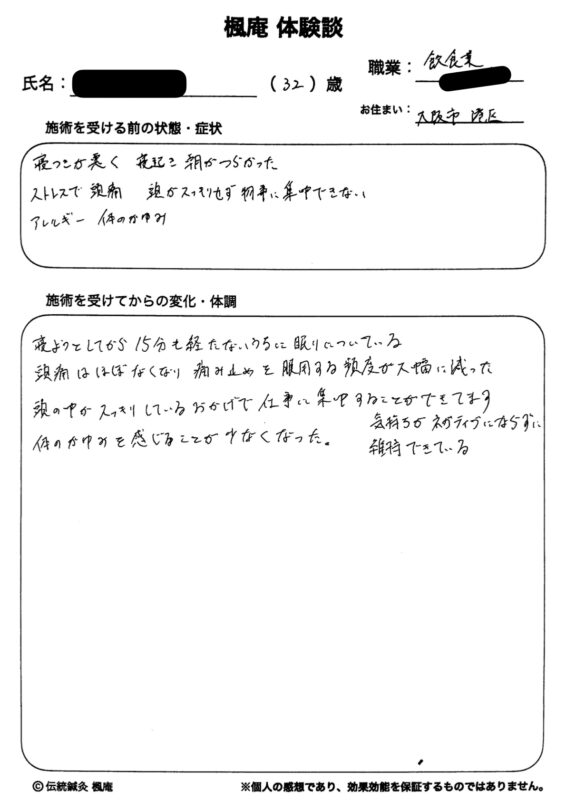 楓庵 体験談
氏名： （32）歳
職業： 飲食業
お住まい： 大阪市 港区
施術を受ける前の状態・症状
寝つきが悪く 寝起き 朝がつらかった
ストレスで頭痛 頭がスッキリせず物事に集中できない
アレルギー 体のかゆみ
施術を受けてからの変化・体調
寝ようとしてから15分も経たないうちに眠りについている
頭痛はほぼなくなり 痛み止めを服用する頻度が大幅に減った
頭の中がスッキリしているおかげで仕事に集中することができてます
体のかゆみを感じることが少なくなった。
気持ちがネガティブにならずに
維持できている
©伝統鍼灸 楓庵
※個人の感想であり、効果効能を保証するものではありません。